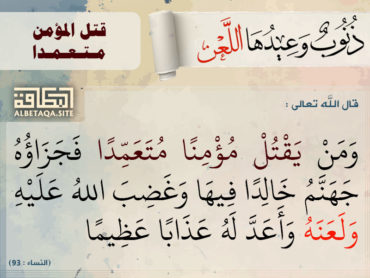 ذُنُوبٌ وَعِيدُهَا اللَّعْن
قتل المؤمن
متعمدا
البطاقة
ALBETAQA.SITE
قال الله تعالى :
وَمَنْ يَقْتُلْ مُؤْمِنًا مُتَعَمِّدًا فَجَزَاؤُهُ
جَهَنَّمُ خَالِدًا فِيهَا وَغَضِبَ اللهُ عَلَيْهِ
وَلَعَنَهُ وَأَعَدَّ لَهُ عَذَابًا عَظِيمًا
(النساء : 93)